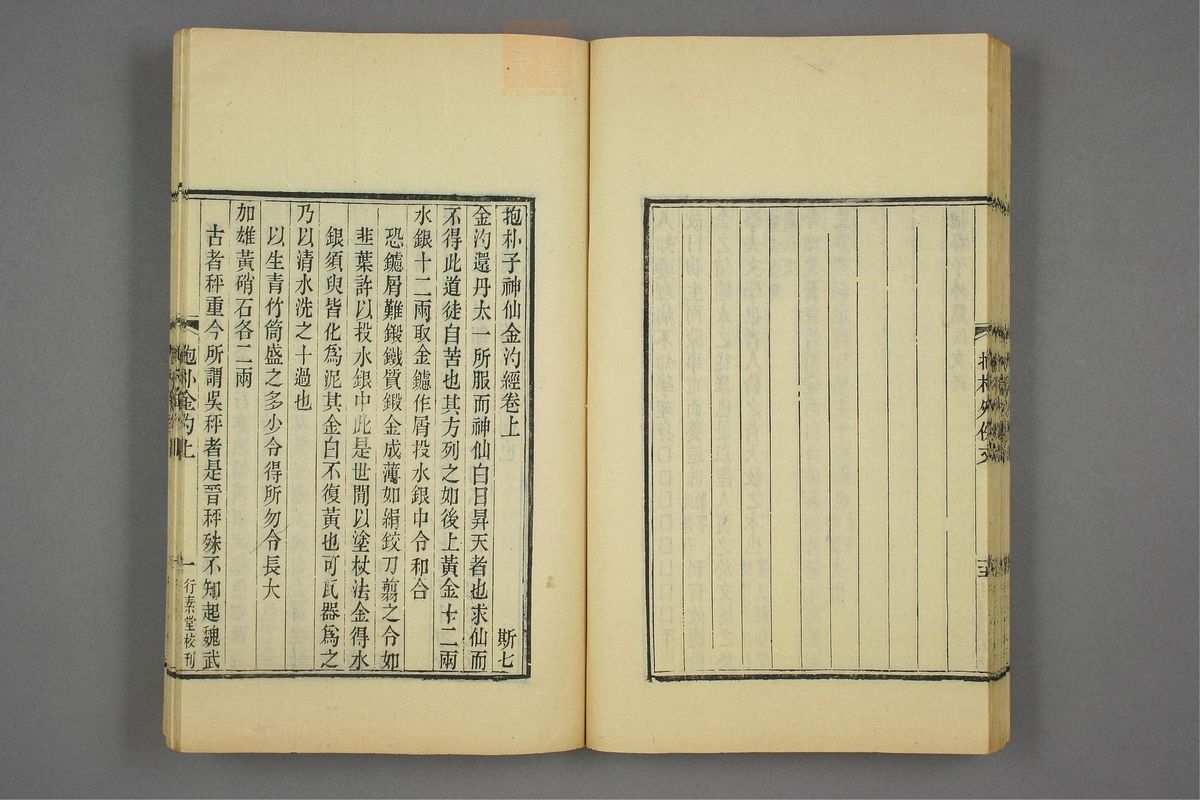 抱朴外佚文
抱朴子神仙金汋經卷上 斯七
金汋還丹太一所服而神仙白日昇天者也求仙而
不得此道徒自苦也其方列之如後上黃金十二兩
水銀十二兩取金鑢作屑投水銀中令和合
恐鑢屑難鍛鐵質鍛金成薄如絹鉸刀翦之令如
韭葉許以投水銀中此是世閒以塗杖法金得水
銀須臾皆化爲泥其金白不復黃也可瓦器爲之
乃以清水洗之十過也
以生青竹筒盛之多少令得所勿令長大
加雄黃硝石各二兩
古者秤重今所謂吳秤者是晉秤殊不知起魏武
抱朴金汋上
一
行素堂校刊